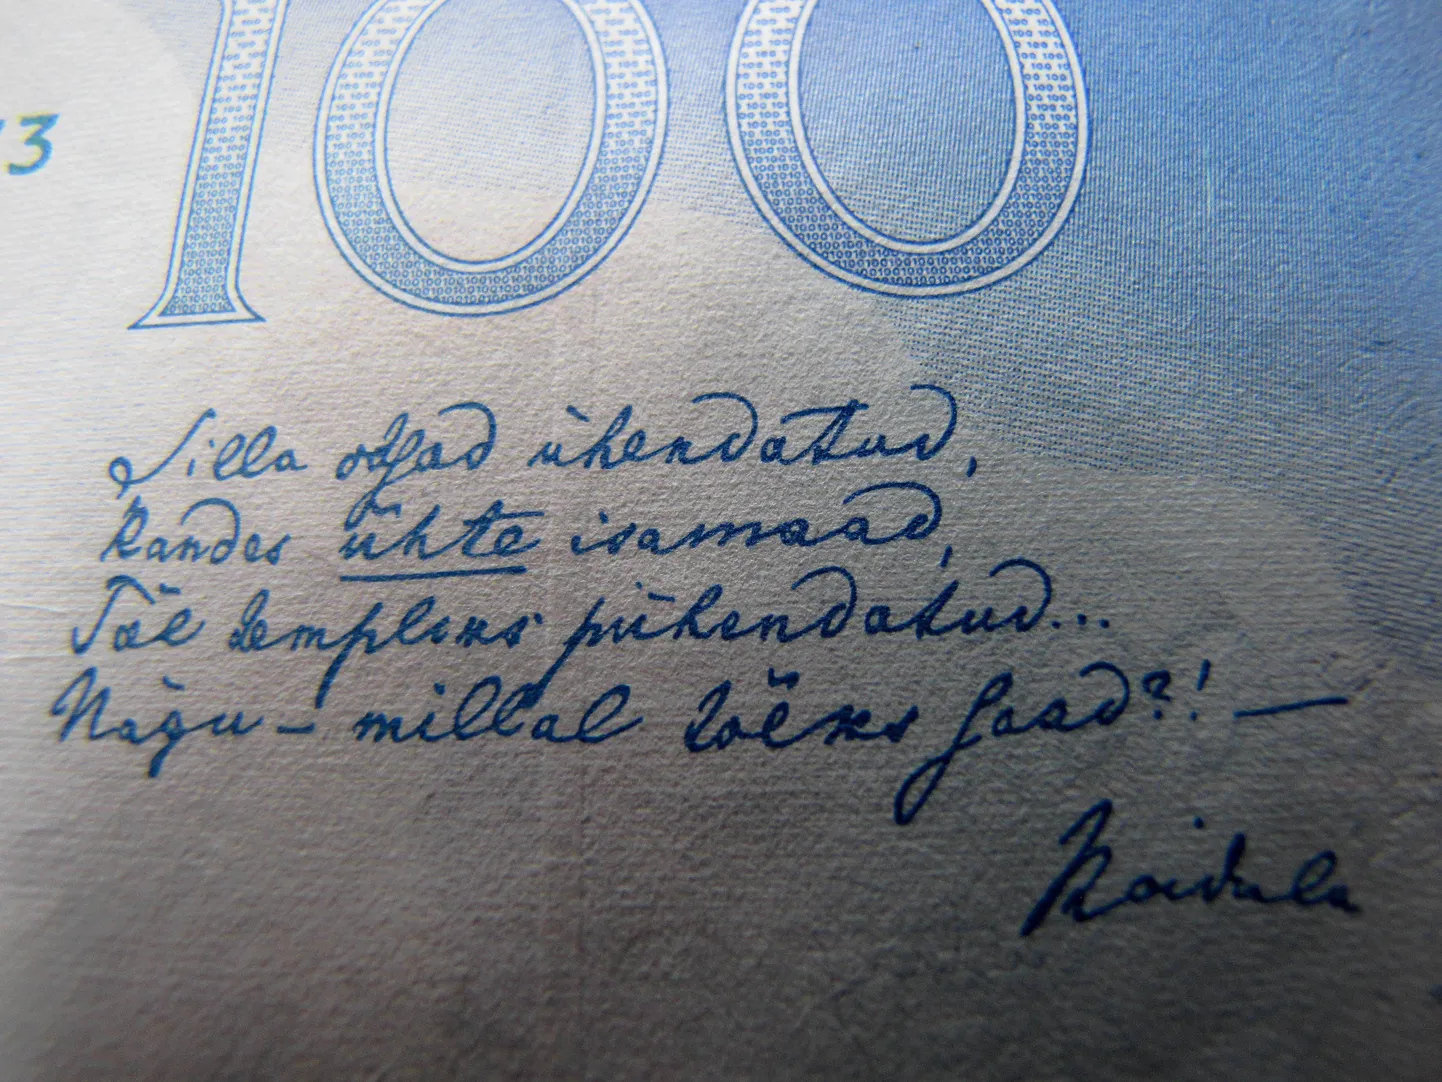 3
100
Silla otsad ühendatud,
Kandes ühte isamaad,
Täl templiks pühendatud...
Nägu – millal tõeks saad?! —
Koidula